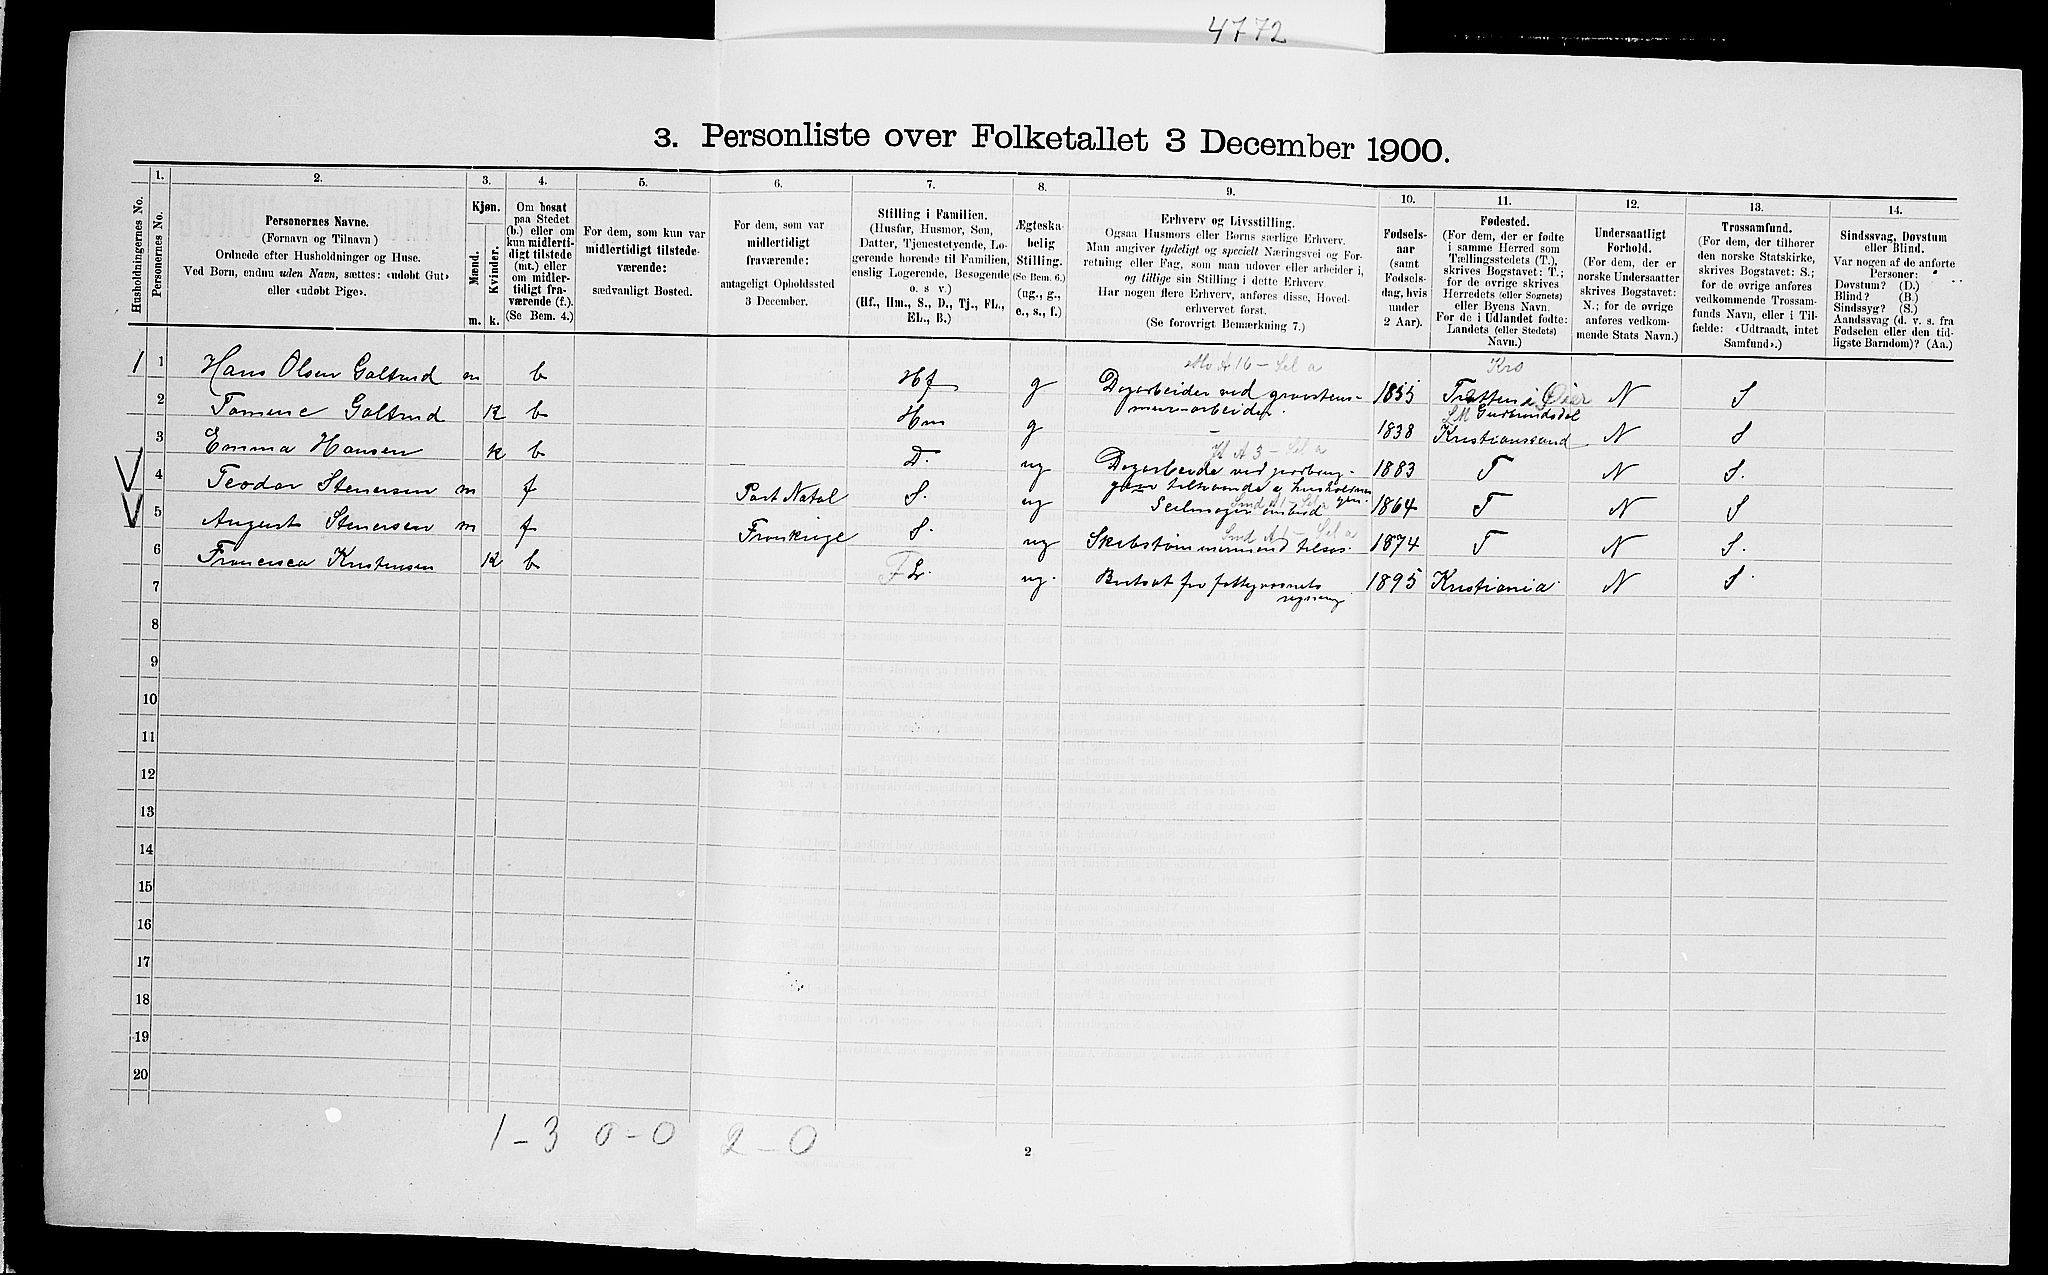 4772
3. Personliste over Folketallet 3 December 1900.
Husholdningernes No.
1.
Personernes No.
2.
Personernes Navne.
(Fornavn og Tilnavn)
Ordnede efter Husholdninger og Huse.
Ved Børn, endnu uden Navn, sættes: «udøbt Gut»
eller «udøbt Pige».
3.
Kjøn.
Mænd.
Kvinder.
m. k.
4.
Om bosat
paa Stedet
(b.) eller om
kun midlerti-
digt tilstede
(mt.) eller
om midler-
tidigt fra-
værende (f.).
(Se Bem. 4.)
5.
For dem, som kun var
midlertidigt tilstede-
værende:
sædvanligt Bosted.
6.
For dem, som var
midlertidigt
fraværende:
antageligt Opholdssted
3 December.
7.
Stilling i Familien.
(Husfar, Husmor, Søn,
Datter, Tjenestetyende, Lo-
gerende hørende til Familien,
enslig Logerende, Besøgende
o. s. v.)
(Hf., Hm., S., D., Tj., FL.,
EL., B.)
8.
Ægteska-
belig
Stilling.
(Se Bem. 6.)
(ug., g.,
e., s., f.)
9.
Erhverv og Livsstilling.
Ogsaa Husmors eller Børns særlige Erhverv.
Man angiver tydeligt og specielt Næringsvei og For-
retning eller Fag, som man udøver eller arbeider i,
og tillige sin Stilling i dette Erhverv.
Har nogen flere Erhverv, anføres disse, Hoved-
erhvervet først.
(Se forøvrigt Bemærkning 7.)
10.
Fødsels-
aar
(samt
Fødsels-
dag, hvis
under
2 Aar).
11.
Fødested.
(For dem, der er fødte
i samme Herred som
Tællingsstedets (T.),
skrives Bogstavet: T.;
for de øvrige skrives
Herredets (eller Sognets)
eller Byens Navn.
For de i Udlandet fødte:
Landets (eller Stedets)
Navn.)
12.
Undersaatligt
Forhold.
(For dem, der er
norske Undersaatter
skrives Bogstavet:
N.; for de øvrige
anføres vedkom-
mende Stats Navn.)
13.
Trossamfund.
(For dem, der tilhører
den norske Statskirke,
skrives Bogstavet: S.;
for de øvrige anføres
vedkommende Trossam-
funds Navn, eller i Til-
fælde: «Udtraadt, intet
Samfund».)
14.
Sindssvag, Døvstum
eller Blind.
Var nogen af de anførte
Personer:
Døvstum? (D.)
Blind? (B.)
Sindssyg? (S.)
Aandssvag (d. v. s. fra
Fødselen eller den tid-
ligste Barndom)? (Aa.)
1 1 Hans Olsen Galtrud m b Hf g Dagarbeider ved gravstens- 1855 Trætten i Øier N S
2 Tomine Galtrud K b Hm g 1838 Kristianssand N S
3 Emma Hansen k b D. ug 1883 T N S.
4 Teodor Stenersen m f Port Natal S. ug 1864 T N S
5 August Stenersen m f Frankrige S. ug 1874 T N S.
6 Francisca Kristensen K b FL. ug. Bortsat for fattigvæsnets 1895 Kristiania N S.
7
8
9
10
11
12
13
14
15
16
17
18
19
20
1-3 0-0 2-0
2